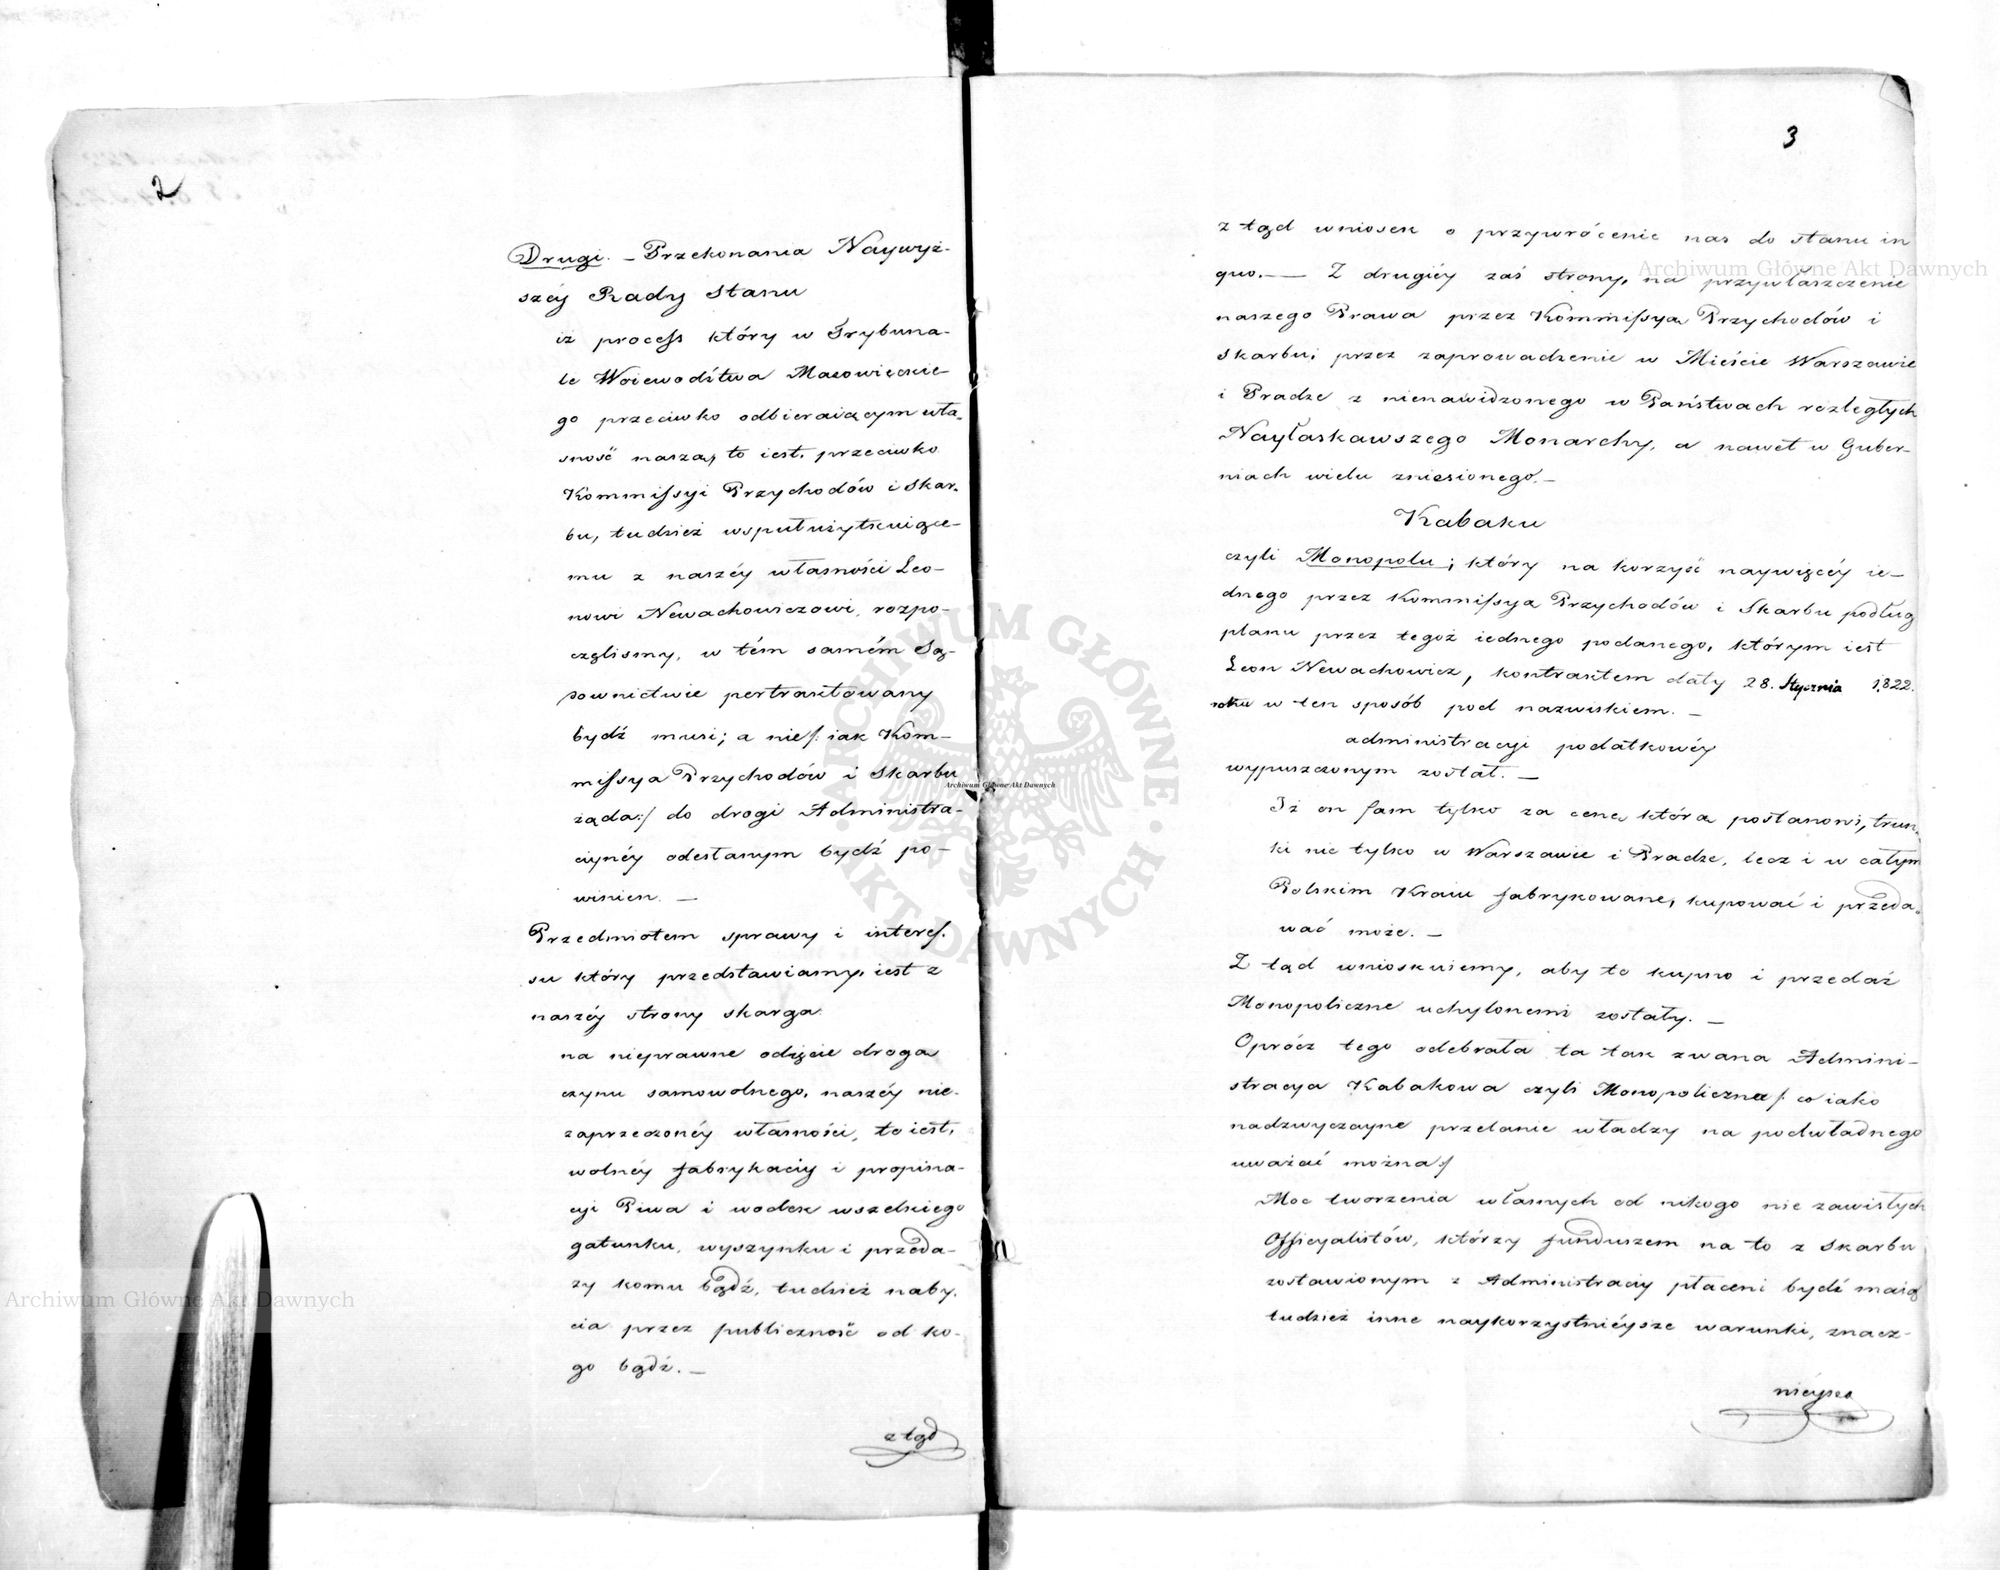 2
Drugi. – Przekonania Naywyż-
széy Rady Stanu
iż process który w Trybuna-
le Woiewodźtwa Mazowieckie-
go przeciwko odbieraiącym wła-
sność naszą, to iest, przeciwko
Kommissyi Przychodów i Skar-
bu, tudzież wspułużytkuiące-
mu z naszéy własności Leo-
nowi Newachowiczowi, rozpo-
częlismy, w tém samém Są-
downictwie pertraktowany
bydź musi; a nie /: iak Kom-
missya Przychodów i Skarbu
żąda :/ do drogi Administra-
cyinéy odesłanym bydź po-
winien. –
Przedmiotem sprawy i interes-
su który przedstawiamy, iest z
naszéy strony skarga.
na nieprawne odięcie drogą
czynu samowolnego, naszéy nie-
zaprzeczonéy własności, to iest,
wolnéy fabrykaciy i propina-
cyi Piwa i wodek wszelkiego
gatunku, wyszynku i przeda-
ży komu bądź, tudzież naby-
cia przez publiczność od ko-
go bądź. –
z tąd
3
z tąd wniosek o przywrócenie nas do stanu in
quo. — Z drugiéy zaś strony, na przywłaszczenie
naszego Prawa przez Kommissyą Przychodów i
Skarbu, przez zaprowadzenie w Mieście Warszawie
i Pradze z nienawidzonego w Państwach rozległych
Nayłaskawszego Monarchy, a nawet w Guber-
niach wielu zniesionego. –
Kabaku
czyli Monopolu; który na korzyść naywięcéy ie-
dnego przez Kommissyą Przychodów i Skarbu podług
planu przez tegoż iednego podanego, którym iest
Leon Newachowicz, kontraktem daty 28. Stycznia 1822.
roku w ten sposób pod nazwiskiem. –
administracyi podatkowéy
wypuszczonym został. –
Iż on sam tylko za cenę którą postanowi, trun-
ki nie tylko w Warszawie i Pradze, lecz i w całym
Polskim Kraiu fabrykowane, kupować i przeda-
wać może. –
Z tąd wnioskuiemy, aby to kupno i przedaż
Monopoliczne uchylonemi zostały. –
Oprócz tego odebrała ta tak zwana Admini-
stracya Kabakowa czyli Monopoliczna /: co iako
nadzwyczayne przelanie władzy na podwładnego
uważać można :/
Moc tworzenia własnych od nikogo nie zawisłych
Officyalistów, którzy funduszem na to z Skarbu
zostawionym z Administraciy płaceni bydź maią
tudzież inne naykorzystniéysze warunki, znacz-
niéysze
Archiwum Główne Akt Dawnych
Archiwum Główne Akt Dawnych
Archiwum Główne Akt Dawnych
ARCHIWUM GŁÓWNE · AKT DAWNYCH ·